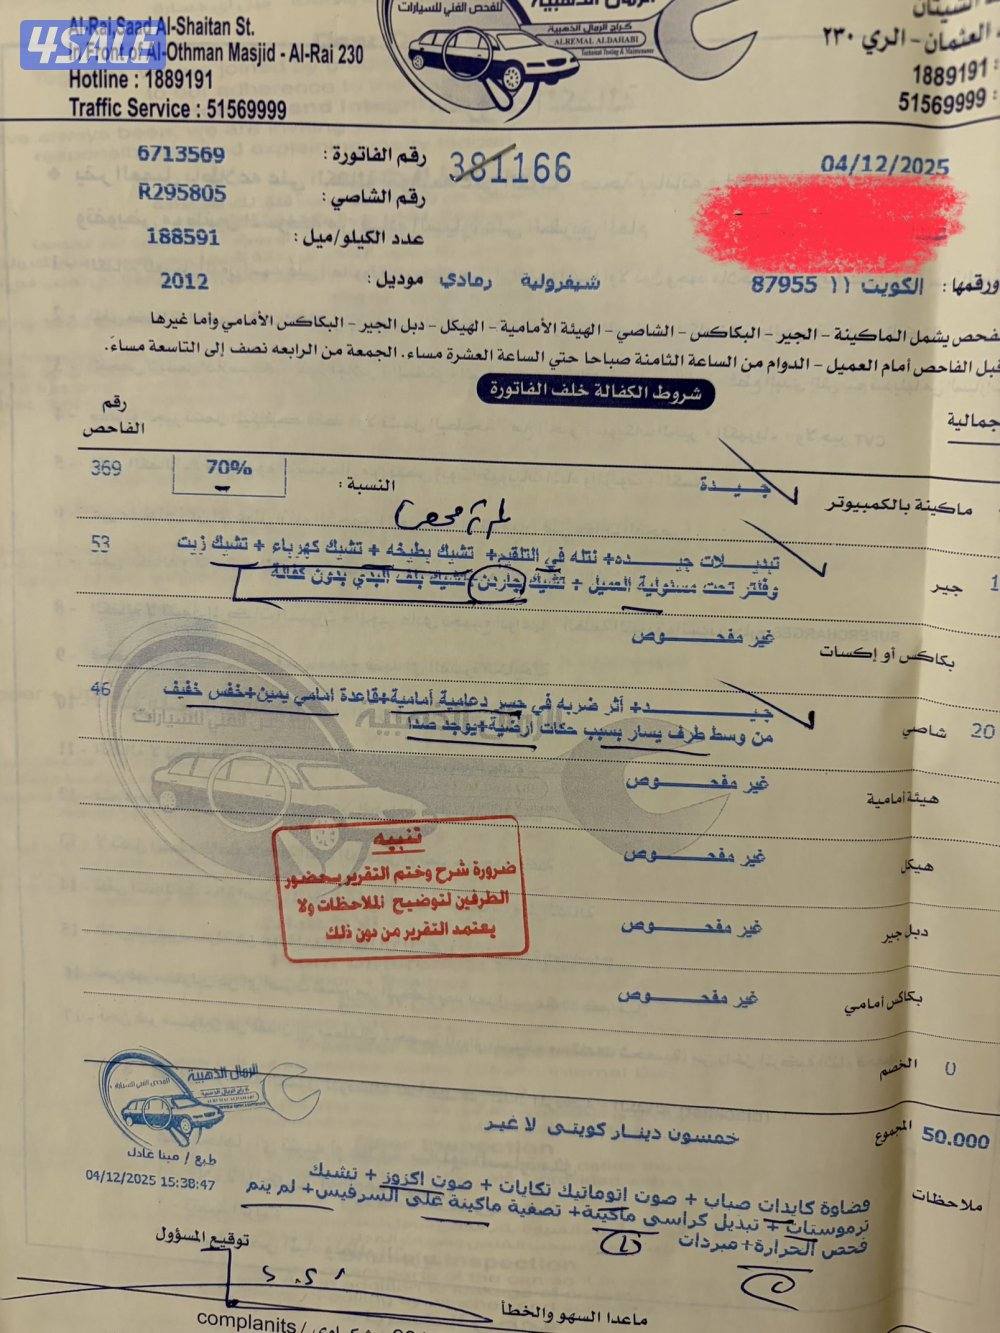 4SALE
Al-Rai,Saad Al-Shaitan St.
In Front of Al-Othman Masjid - Al-Rai 230
Hotline : 1889191
Traffic Service : 51569999
للفحص الفني للسيارات
كراج الرمال الذهبية
ALREMAL ALDAHABI
Technical Testing & Maintenance
الشيتان
العثمان - الري ٢٣٠
1889191 :
51569999 :
رقم الفاتورة : 6713569
381166
04/12/2025
رقم الشاصي : R295805
عدد الكيلو/ميل : 188591
ورقمها : الكويت ١١ 87955 شيفرولية رمادي موديل : 2012
فحص يشمل الماكينة - الجير - البكاكس - الشاصي - الهيئة الأمامية - الهيكل - دبل الجير - البكاكس الأمامي وأما غيرها
قبل الفاحص أمام العميل - الدوام من الساعة الثامنة صباحا حتي الساعة العشرة مساء. الجمعة من الرابعه نصف إلى التاسعة مساءً.
شروط الكفالة خلف الفاتورة
جمالية
رقم الفاحص
ماكينة بالكمبيوتر جـيـدة النسبة : 70% 369
1 جير تبديـــلات جيـــده+ نتله في التلقيم+ تشيك بطيخه + تشيك كهرباء + تشيك زيت 53
وفلتر تحت مسئولية العميل + تشيك جاربن+تشيك بلف البدي بدون كفالة
بكاكس أو إكسات غير مفحـــــوص
20 شاصي جيـــــد+ أثر ضربه في جسر دعامية أمامية+قاعدة امامي يمين+خفس خفيف 46
من وسط طرف يسار بسبب حكات ارضية+يوجد صدا
هيئة أمامية غير مفحـــــوص
هيكل غير مفحـــــوص
تنبيه
ضرورة شرح وختم التقرير بحضور
الطرفين لتوضيح الملاحظات ولا
يعتمد التقرير من دون ذلك
دبل جير غير مفحـــــوص
بكاكس أمامي غير مفحـــــوص
الخصم 0
الرمال الذهبية
50.000 المجموع خمسون دينار كويتى لا غير
طبع / مينا عادل
04/12/2025 15:38:47
ملاحظات
فضاوة كايدات صباب + صوت اتوماتيك تكايات + صوت اكزوز + تشيك
ترموستات + تبديل كراسي ماكينة+ تصفية ماكينة على السرفيس+ لم يتم
فحص الحرارة+مبردات
توقيع المسؤول
ماعدا السهو والخطأ
complanits /